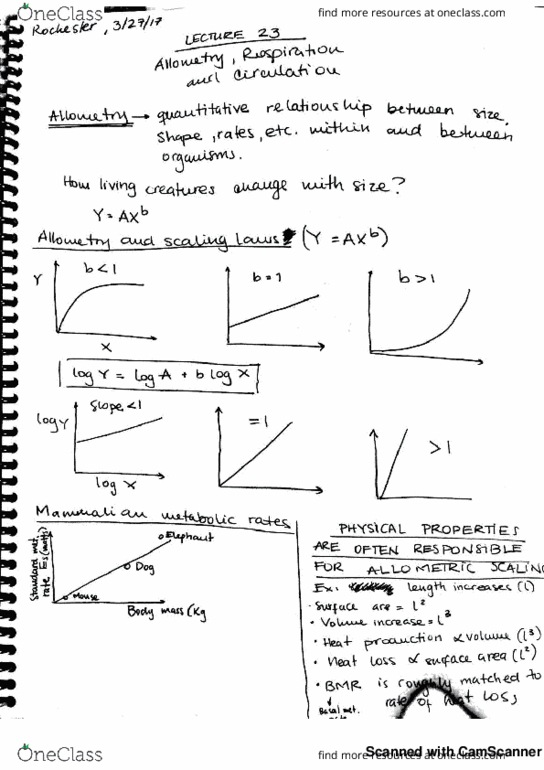 OneClass
find more resources at oneclass.com
Rochester, 3/27/17
LECTURE 23
Allometry, Respiration
and Circulation
Allometry → quantitative relationship between size,
shape, rates, etc. within and between
organisms.
How living creatures change with size?
Y = AX^b
Allometry and scaling laws (Y = AX^b)
b<1
b=1
b>1
Y
X
log Y = log A + b log X
slope<1
=1
>1
log Y
log X
Mammalian metabolic rates
Standard met.
rate Es (watts)
Elephant
Dog
Mouse
Body mass (Kg
PHYSICAL PROPERTIES
ARE OFTEN RESPONSIBLE
FOR ALLOMETRIC SCALING
Ex: length increases (l)
• Surface are = l²
• Volume increase = l³
• Heat production ∝ volume (l³)
• Heat loss ∝ surface area (l²)
• BMR is roughly matched to
rate of heat loss;
Basal met.
OneClass
find more resources at oneclass.com
Scanned with CamScanner